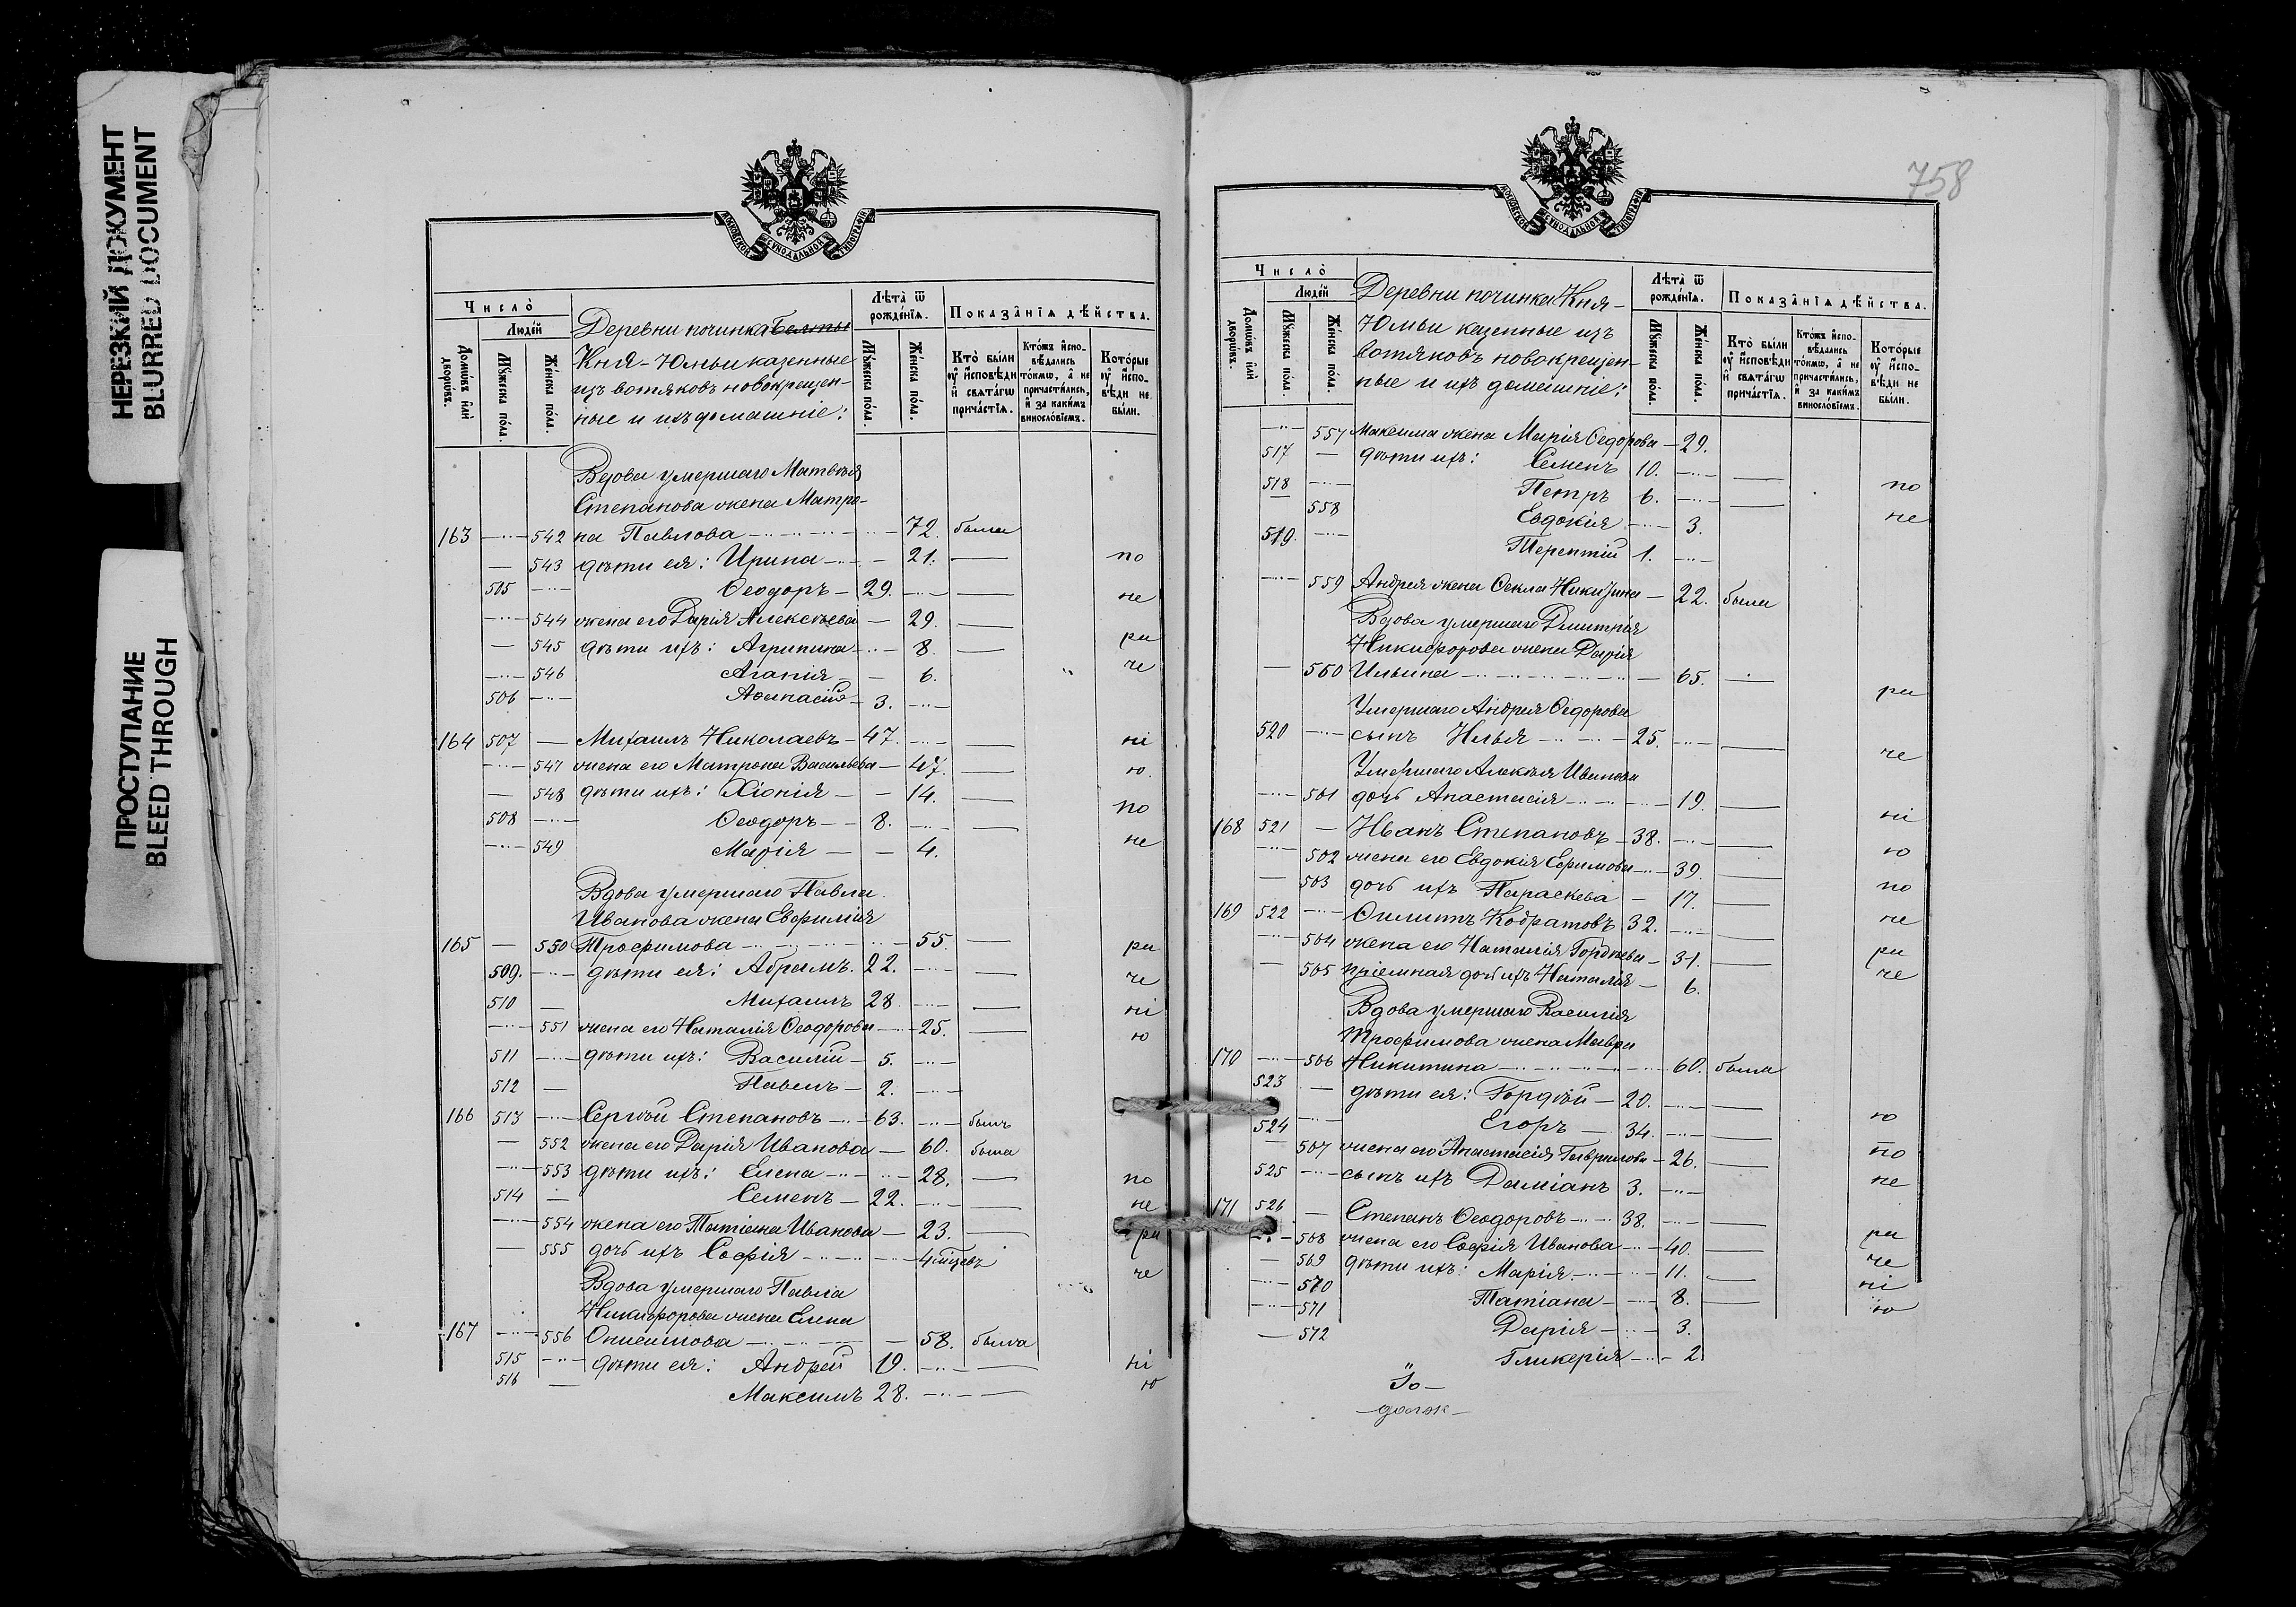 НЕРЕЗКИЙ ДОКУМЕНТ
BLURRED DOCUMENT
ПРОСТУПАНИЕ
BLEED THROUGH
МОСКОВСКОЙ СѴНОДАЛЬНОЙ ТИПОГРАФІИ
Число̀
Люде́й
Домѡ́въ и҆лѝ дворѡ́въ.
Мꙋ́жеска по́ла.
Же́нска по́ла.
Деревни починка Бельты
Кня-Юмьи казенные
изъ вотяковъ новокрещен-
ные и ихъ домашніе:
Лѣта̀ ѿ рожде́нїѧ.
Мꙋ́жеска по́ла.
Же́нска по́ла.
Показа̂нїѧ дѣ́йства.
Кто̀ бы́ли оу҆ и҆́сповѣди и҆ свѧта́гѡ прича́стїѧ.
Кто́жъ и҆спо-вѣ́дались то́кмѡ, а҆ не причасти́лись, и҆ за каки́мъ винословїемъ.
Кото́рые оу҆ и҆́спо-вѣди не бы́ли.
Вдова умершаго Матвѣя
Степанова жена Матре-
163 542 на Павлова 72. была
543 дѣти ея: Ирина 21. по
505 Ѳеодоръ 29. не
544 жена его Дарія Алексѣева 29. ра
545 дѣти ихъ: Агрипина 8. че
546 Агапія 6.
506 Аѳанасій 3.
164 507 Михаилъ Николаевъ 47. ні
547 жена его Матрона Васильева 47. ю.
548 дѣти ихъ: Хіонія 14. по
508 Ѳеодоръ 8. не
549 Марія 4.
Вдова умершаго Павла
Иванова жена Евфимія
165 550 Трофимова 55. ра
509. дѣти ея: Абрамъ. 22. че
510 Михаилъ 28. ні
551 жена его Наталія Ѳеодорова 25. ю
511 дѣти ихъ: Василій 5.
512 Павелъ 2.
166 513 Сергѣй Степановъ 63. былъ
552 жена его Дарія Иванова 60. была
553 дѣти ихъ: Елена 28. по
514 Семенъ 22. не
554 жена его Татіана Иванова 23. ра
555 дочь ихъ Софія 4 мцевъ че
Вдова умершаго Павла
Никифорова жена Елена
167 556 Онисимова 58. была
515 дѣти ея: Андрей 19. ні
516 Максимъ 28. ю
758
МОСКОВСКОЙ СѴНОДАЛЬНОЙ ТИПОГРАФІИ
Число̀
Люде́й
Домѡ́въ и҆лѝ дворѡ́въ.
Мꙋ́жеска по́ла.
Же́нска по́ла.
Деревни починка Кня-
Юмьи казенные изъ
вотяковъ новокрещен-
ные и ихъ домашніе:
Лѣта̀ ѿ рожде́нїѧ.
Мꙋ́жеска по́ла.
Же́нска по́ла.
Показа̂нїѧ дѣ́йства.
Кто̀ бы́ли оу҆ и҆́сповѣди и҆ свѧта́гѡ прича́стїѧ.
Кто́жъ и҆спо-вѣ́дались то́кмѡ, а҆ не причасти́лись, и҆ за каки́мъ винословїемъ.
Кото́рые оу҆ и҆́спо-вѣди не бы́ли.
557 Максима жена Марія Ѳедорова 29.
517 дѣти ихъ: Семенъ 10. по
518 Петръ 6. не
558 Евдокія 3.
519. Терентій 1.
559 Андрея жена Ѳекла Никитина 22. была
Вдова умершаго Дмитрія
Никифорова жена Дарія
560 Ильина 65. ра
Умершаго Андрея Ѳедорова
520 сынъ Илья 25. че
Умершаго Алексѣя Иванова
501 дочь Анастасія 19. ні
168 521 Иванъ Степановъ 38. ю
502 жена его Евдокія Ефимова 39. по
503 дочь ихъ Параскева 17. не
169 522 Филиппъ Кодратовъ 32. ра
504 жена его Наталія Гордѣева 31. че
505 пріемная дочь ихъ Наталья 6.
Вдова умершаго Василія
Трофимова жена Мавра
170 506 Никитина 60. была
523 дѣти ея: Гордѣй 20. ю
524 Егоръ 34. по
507 жена его Анастасія Гаврилова 26. не
525 сынъ ихъ Даміанъ 3.
171 526 Степанъ Ѳеодоровъ 38. ра
508 жена его Софія Иванова 40. че
569 дѣти ихъ: Марія 11. ні
570 Татіана 8. ю
571 Дарія 3.
572 Гликерія 2.
До-
-долж-